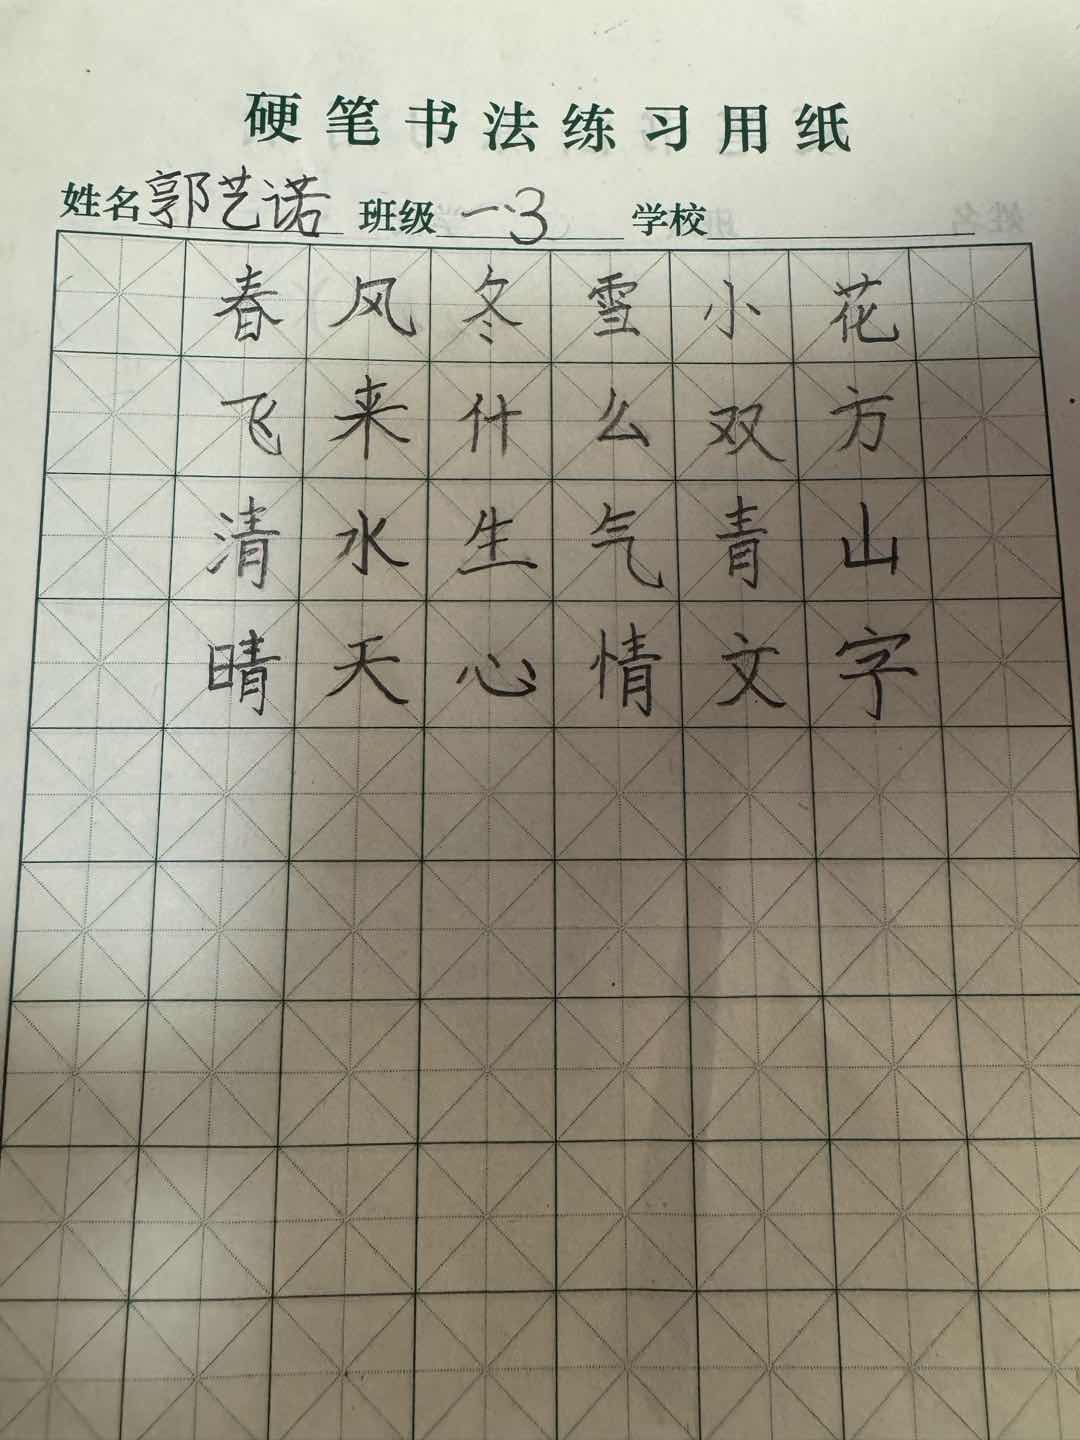 硬笔书法练习用纸
姓名郭艺诺 班级一·3 学校
春风冬雪小花
飞来什么双方
清水生气青山
晴天心情文字